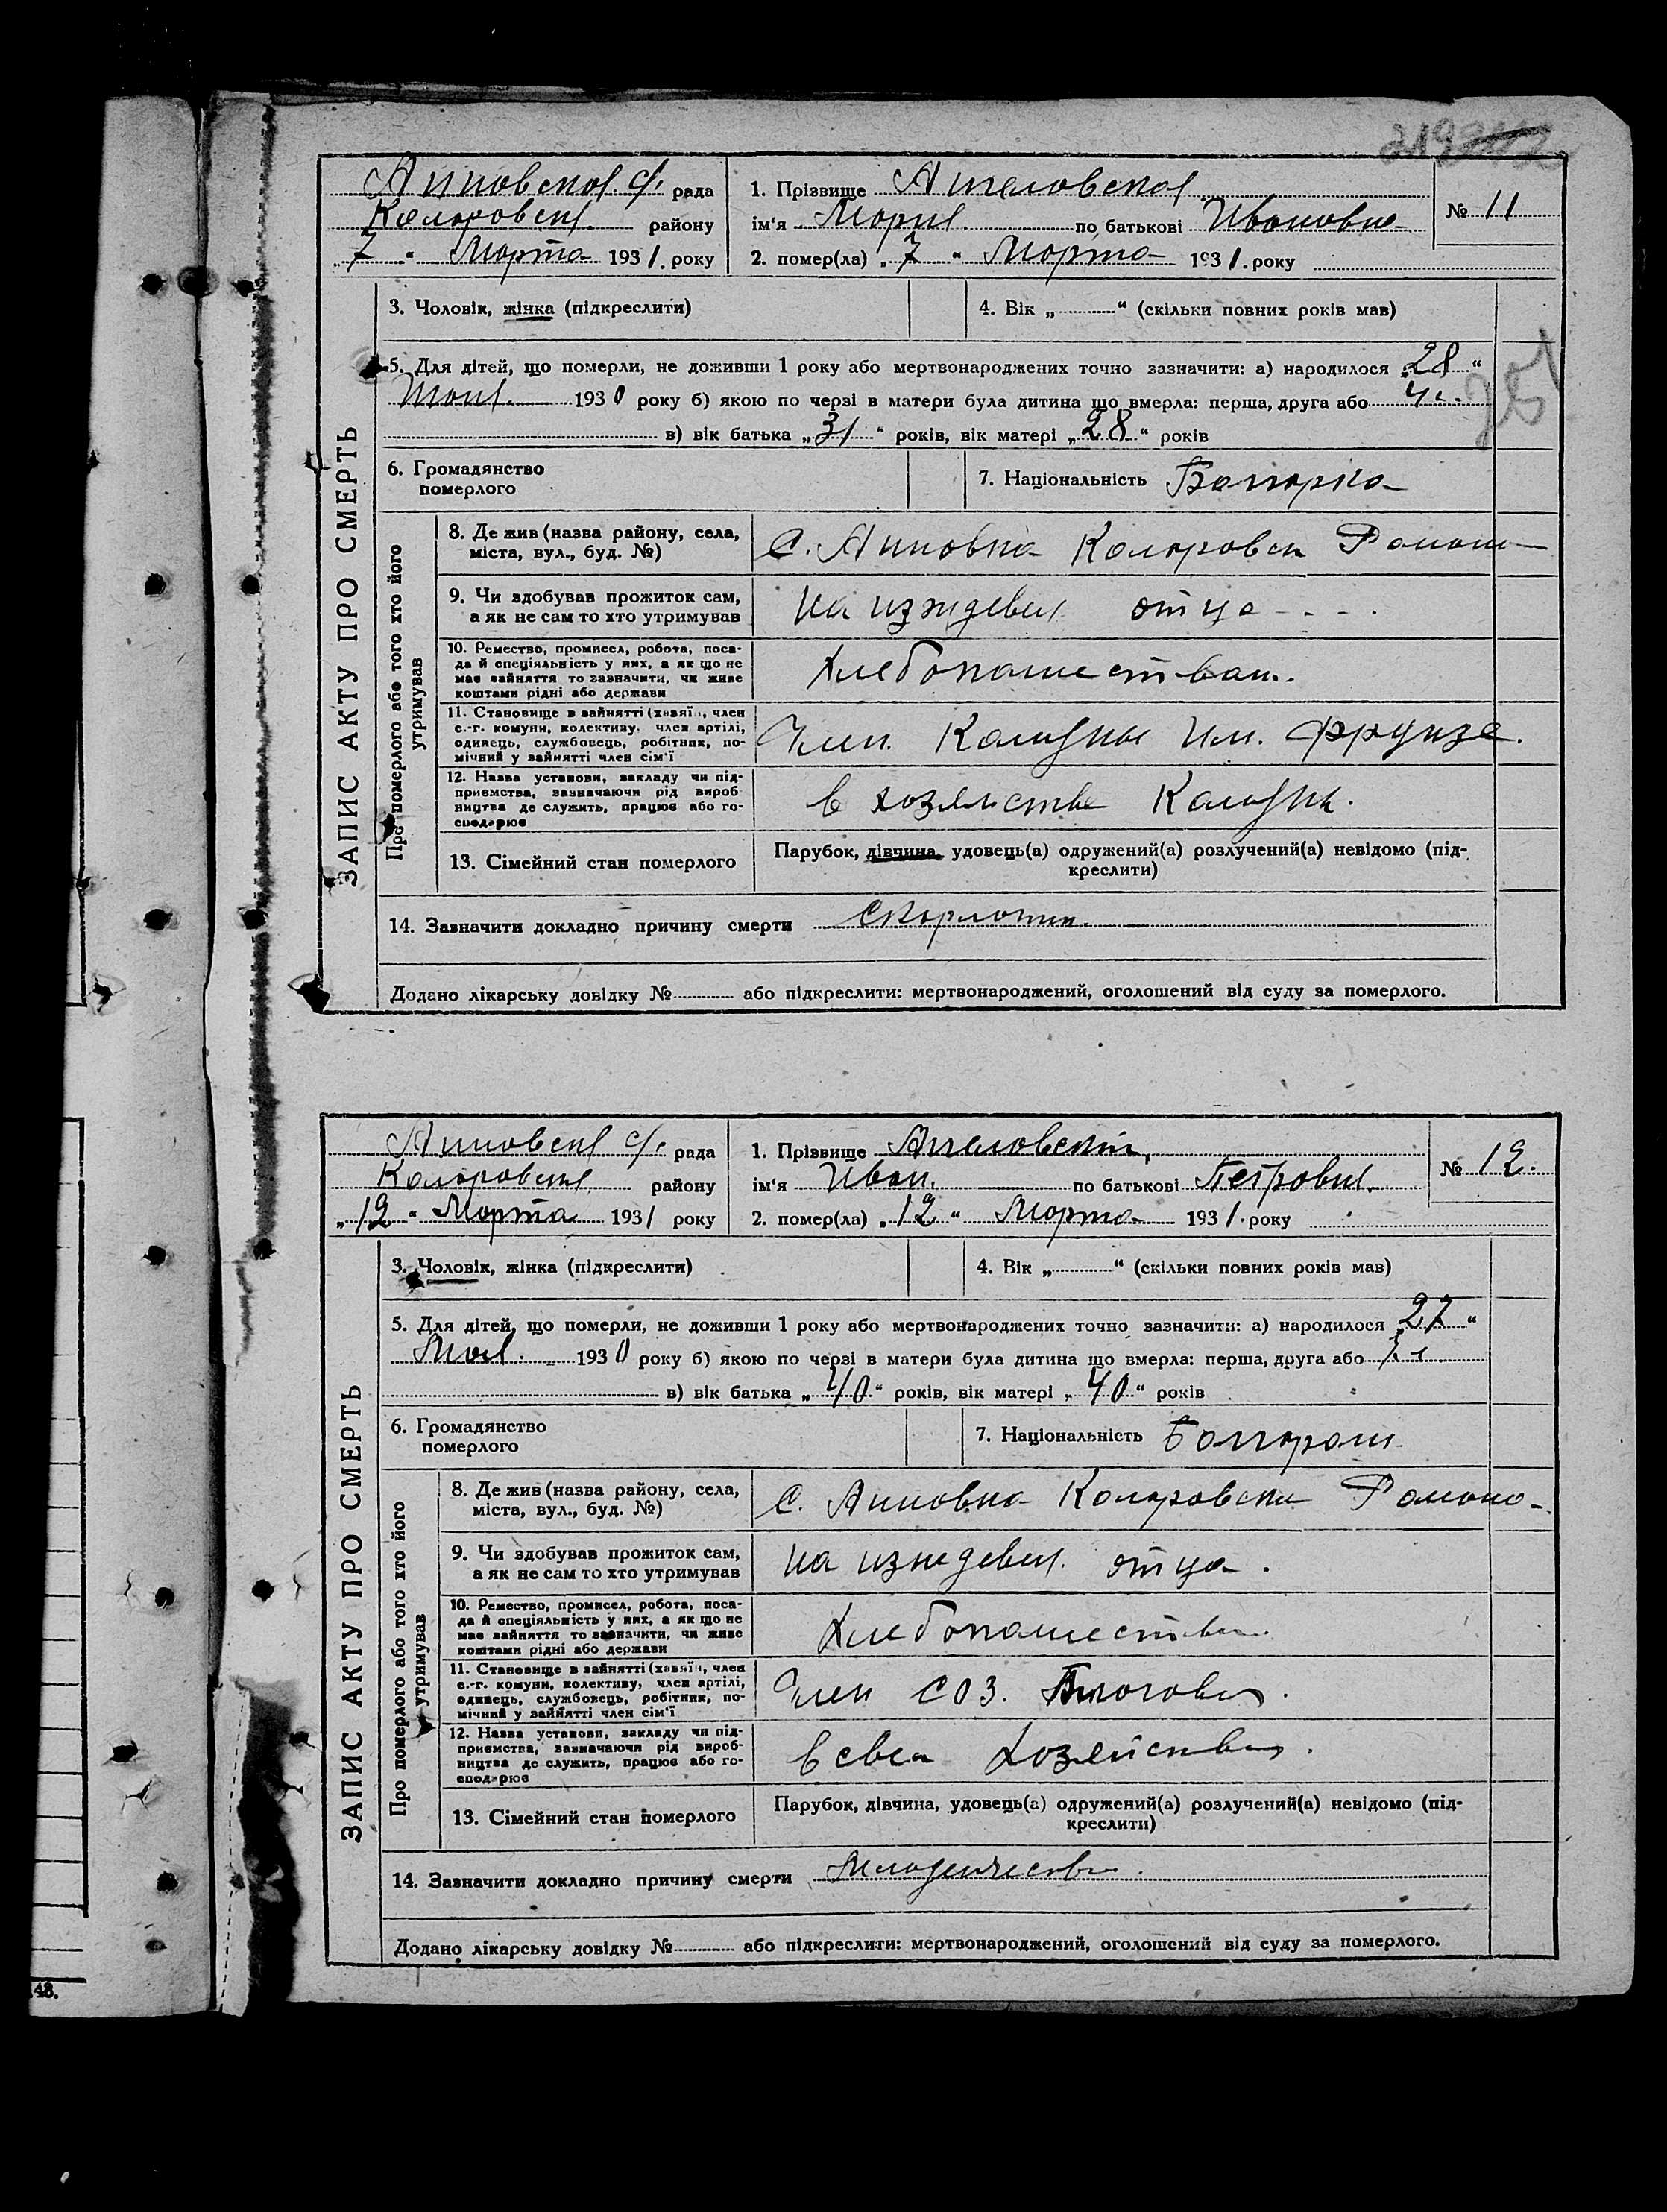 219
Анновской с/с рада
Коларовск. району
„ 7 “ Марта 1931. року
1. Прізвище Ангеловская
ім‘я Мария по батькові Ивановна
2. помер(ла) „ 7 “ Марта 1931. року
№ 11
ЗАПИС АКТУ ПРО СМЕРТЬ
3. Чоловік, жінка (підкреслити)
4. Вік „ “ (скільки повних років мав)
5. Для дітей, що померли, не доживши 1 року або мертвонароджених точно зазначити: а) народилося „28“
1930 року б) якою по черзі в матери була дитина що вмерла: перша, друга або 4
в) вік батька „31“ років, вік матері „28“ років
6. Громадянство
померлого
7. Національність Болгарка
Про померлого або того хто його
утримував
8. Де жив (назва району, села,
міста, вул., буд. №)
с. Анновка Коларовск Района
9. Чи здобував прожиток сам,
а як не сам то хто утримував
на иждевен отца
10. Ремество, промисел, робота, поса-
да й спеціяльність у них, а як що не
має зайняття то зазначити, чи живе
коштами рідні або держави
Хлебопашеством.
11. Становище в зайнятті (хазяїн, член
с.-г. комуни, колективу, член артілі,
одинець, службовець, робітник, по-
мічний у зайнятті член сім‘ї
Член Комуны Им. Фрунзе.
12. Назва установи, закладу чи під-
приємства, зазначаючи рід вироб
ництва де служить, працює або го-
сподарює
в хозяйстве Комуны.
13. Сімейний стан померлого
Парубок, дівчина, удовець(а) одружений(а) розлучений(а) невідомо (під-
креслити)
14. Зазначити докладно причину смерти Скорлотин.
Додано лікарську довідку № або підкреслити: мертвонароджений, оголошений від суду за померлого.
Анновской с/с рада
Коларовская району
„12“ Марта 1931 року
1. Прізвище Ангеловский,
ім‘я Иван. по батькові Петрович.
2. помер(ла) „12“ Марта 1931. року
№ 12.
ЗАПИС АКТУ ПРО СМЕРТЬ
3. Чоловік, жінка (підкреслити)
4. Вік „ “ (скільки повних років мав)
5. Для дітей, що померли, не доживши 1 року або мертвонароджених точно зазначити: а) народилося „27“
1930 року б) якою по черзі в матери була дитина що вмерла: перша, друга або
в) вік батька „40“ років, вік матері „40“ років
6. Громадянство
померлого
7. Національність Болгарин
Про померлого або того хто його
утримував
8. Де жив (назва району, села,
міста, вул., буд. №)
с. Анновка Коларовска Района
9. Чи здобував прожиток сам,
а як не сам то хто утримував
на иждевен. отца.
10. Ремество, промисел, робота, поса-
да й спеціяльність у них, а як що не
має зайняття то зазначити, чи живе
коштами рідні або держави
Хлебопашество.
11. Становище в зайнятті (хазяїн, член
с.-г. комуни, колективу, член артілі,
одинець, службовець, робітник, по-
мічний у зайнятті член сім‘ї
Член СОЗ.
12. Назва установи, закладу чи під-
приємства, зазначаючи рід вироб-
ництва де служить, працює або го-
сподарює
в своем хозяйстве.
13. Сімейний стан померлого
Парубок, дівчина, удовець(а) одружений(а) розлучений(а) невідомо (під-
креслити)
14. Зазначити докладно причину смерти Младенчество.
Додано лікарську довідку № або підкреслити: мертвонароджений, оголошений від суду за померлого.
48.